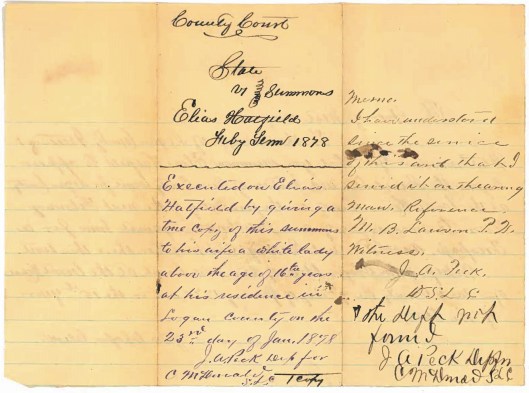 County Court
State
vs } Summons
Elias Hatfield
Feby Term 1878
Executed on Elias
Hatfield by giving a
true copy of this summons
to his wife a white lady
above the age of 16th years
at his residence in
Logan County on the
23rd day of Jan. 1878
J. A. Peck Dep for
S.L.C 1 copy
Memo
I have understood
since the service
of this and that I
served it on the wrong
man. Reference
M. B. Lawson
Witness.
J. A. Peck,
D S L C
the Deff not
found
J A Peck Dep for
S L C